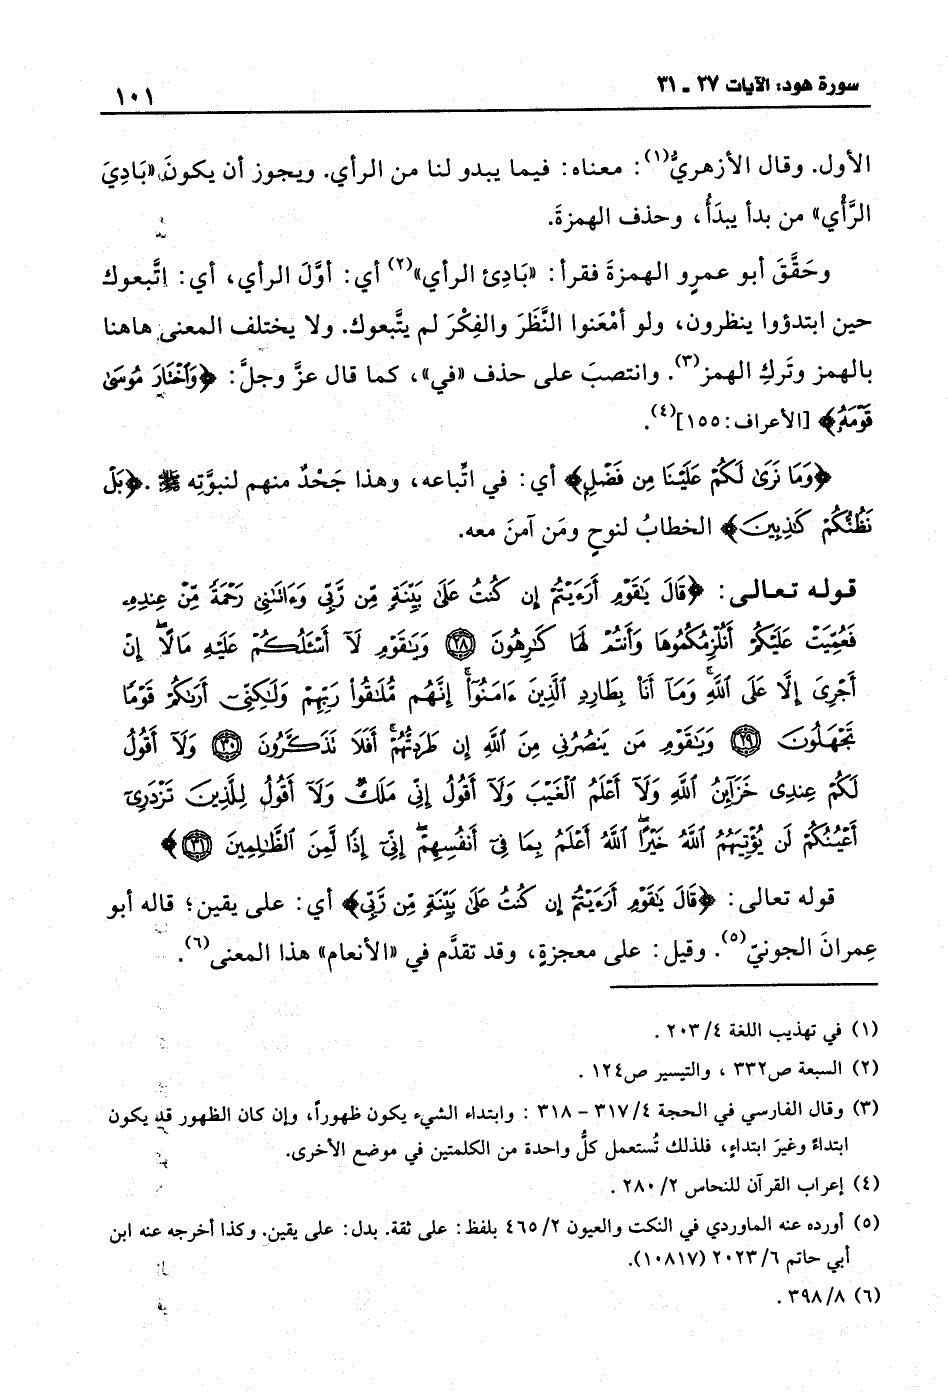 سورة هود: الآيات ٢٧ ـ ٣١
١٠١
الأول. وقال الأزهريُّ(١): معناه: فيما يبدو لنا من الرأي. ويجوز أن يكونَ «بَادِيَ
الرَّأْي» من بدأ يبدَأُ، وحذف الهمزةَ.
وحَقَّقَ أبو عمرٍو الهمزةَ فقرأ: «بَادِئ الرأي»(٢) أي: أوَّلَ الرأي، أي: اتَّبعوك
حين ابتدؤوا ينظرون، ولو أمْعَنوا النَّظَرَ والفِكْرَ لم يتَّبعوك. ولا يختلف المعنى هاهنا
بالهمز وتَركِ الهمز(٣). وانتصبَ على حذف «في»، كما قال عزَّ وجلَّ: ﴿وَٱخْتَارَ مُوسَىٰ
قَوْمَهُۥ﴾ [الأعراف: ١٥٥](٤).
﴿وَمَا نَرَىٰ لَكُمْ عَلَيْنَا مِن فَضْلٍ﴾ أي: في اتِّباعه، وهذا جَحْدٌ منهم لنبوَّته ﷺ. ﴿بَلْ
نَظُنُّكُمْ كَٰذِبِينَ﴾ الخطابُ لنوحٍ ومَن آمنَ معه.
قوله تعالى: ﴿قَالَ يَٰقَوْمِ أَرَءَيْتُمْ إِن كُنتُ عَلَىٰ بَيِّنَةٍ مِّن رَّبِّى وَءَاتَىٰنِى رَحْمَةً مِّنْ عِندِهِۦ
فَعُمِّيَتْ عَلَيْكُمْ أَنُلْزِمُكُمُوهَا وَأَنتُمْ لَهَا كَٰرِهُونَ ﴿٢٨﴾ وَيَٰقَوْمِ لَآ أَسْـَٔلُكُمْ عَلَيْهِ مَالًا ۖ إِنْ
أَجْرِىَ إِلَّا عَلَى ٱللَّهِ ۚ وَمَآ أَنَا۠ بِطَارِدِ ٱلَّذِينَ ءَامَنُوٓا۟ ۚ إِنَّهُم مُّلَٰقُوا۟ رَبِّهِمْ وَلَٰكِنِّىٓ أَرَىٰكُمْ قَوْمًا
تَجْهَلُونَ ﴿٢٩﴾ وَيَٰقَوْمِ مَن يَنصُرُنِى مِنَ ٱللَّهِ إِن طَرَدتُّهُمْ ۚ أَفَلَا تَذَكَّرُونَ ﴿٣٠﴾ وَلَآ أَقُولُ
لَكُمْ عِندِى خَزَآئِنُ ٱللَّهِ وَلَآ أَعْلَمُ ٱلْغَيْبَ وَلَآ أَقُولُ إِنِّى مَلَكٌ وَلَآ أَقُولُ لِلَّذِينَ تَزْدَرِىٓ
أَعْيُنُكُمْ لَن يُؤْتِيَهُمُ ٱللَّهُ خَيْرًا ۖ ٱللَّهُ أَعْلَمُ بِمَا فِىٓ أَنفُسِهِمْ ۖ إِنِّىٓ إِذًا لَّمِنَ ٱلظَّٰلِمِينَ ﴿٣١﴾﴾
قوله تعالى: ﴿قَالَ يَٰقَوْمِ أَرَءَيْتُمْ إِن كُنتُ عَلَىٰ بَيِّنَةٍ مِّن رَّبِّى﴾ أي: على يقين؛ قاله أبو
عِمرانَ الجونيّ(٥). وقيل: على معجزةٍ، وقد تقدَّم في «الأنعام» هذا المعنى(٦).
(١) في تهذيب اللغة ٢٠٣/٤ .
(٢) السبعة ص٣٣٢ ، والتيسير ص١٢٤ .
(٣) وقال الفارسي في الحجة ٣١٧/٤ - ٣١٨ : وابتداء الشيء يكون ظهوراً، وإن كان الظهور قد يكون
ابتداءً وغيرَ ابتداءٍ، فلذلك تُستعمل كلُّ واحدة من الكلمتين في موضع الأخرى.
(٤) إعراب القرآن للنحاس ٢٨٠/٢ .
(٥) أورده عنه الماوردي في النكت والعيون ٤٦٥/٢ بلفظ: على ثقة. بدل: على يقين. وكذا أخرجه عنه ابن
أبي حاتم ٢٠٢٣/٦ (١٠٨١٧).
(٦) ٣٩٨/٨ .